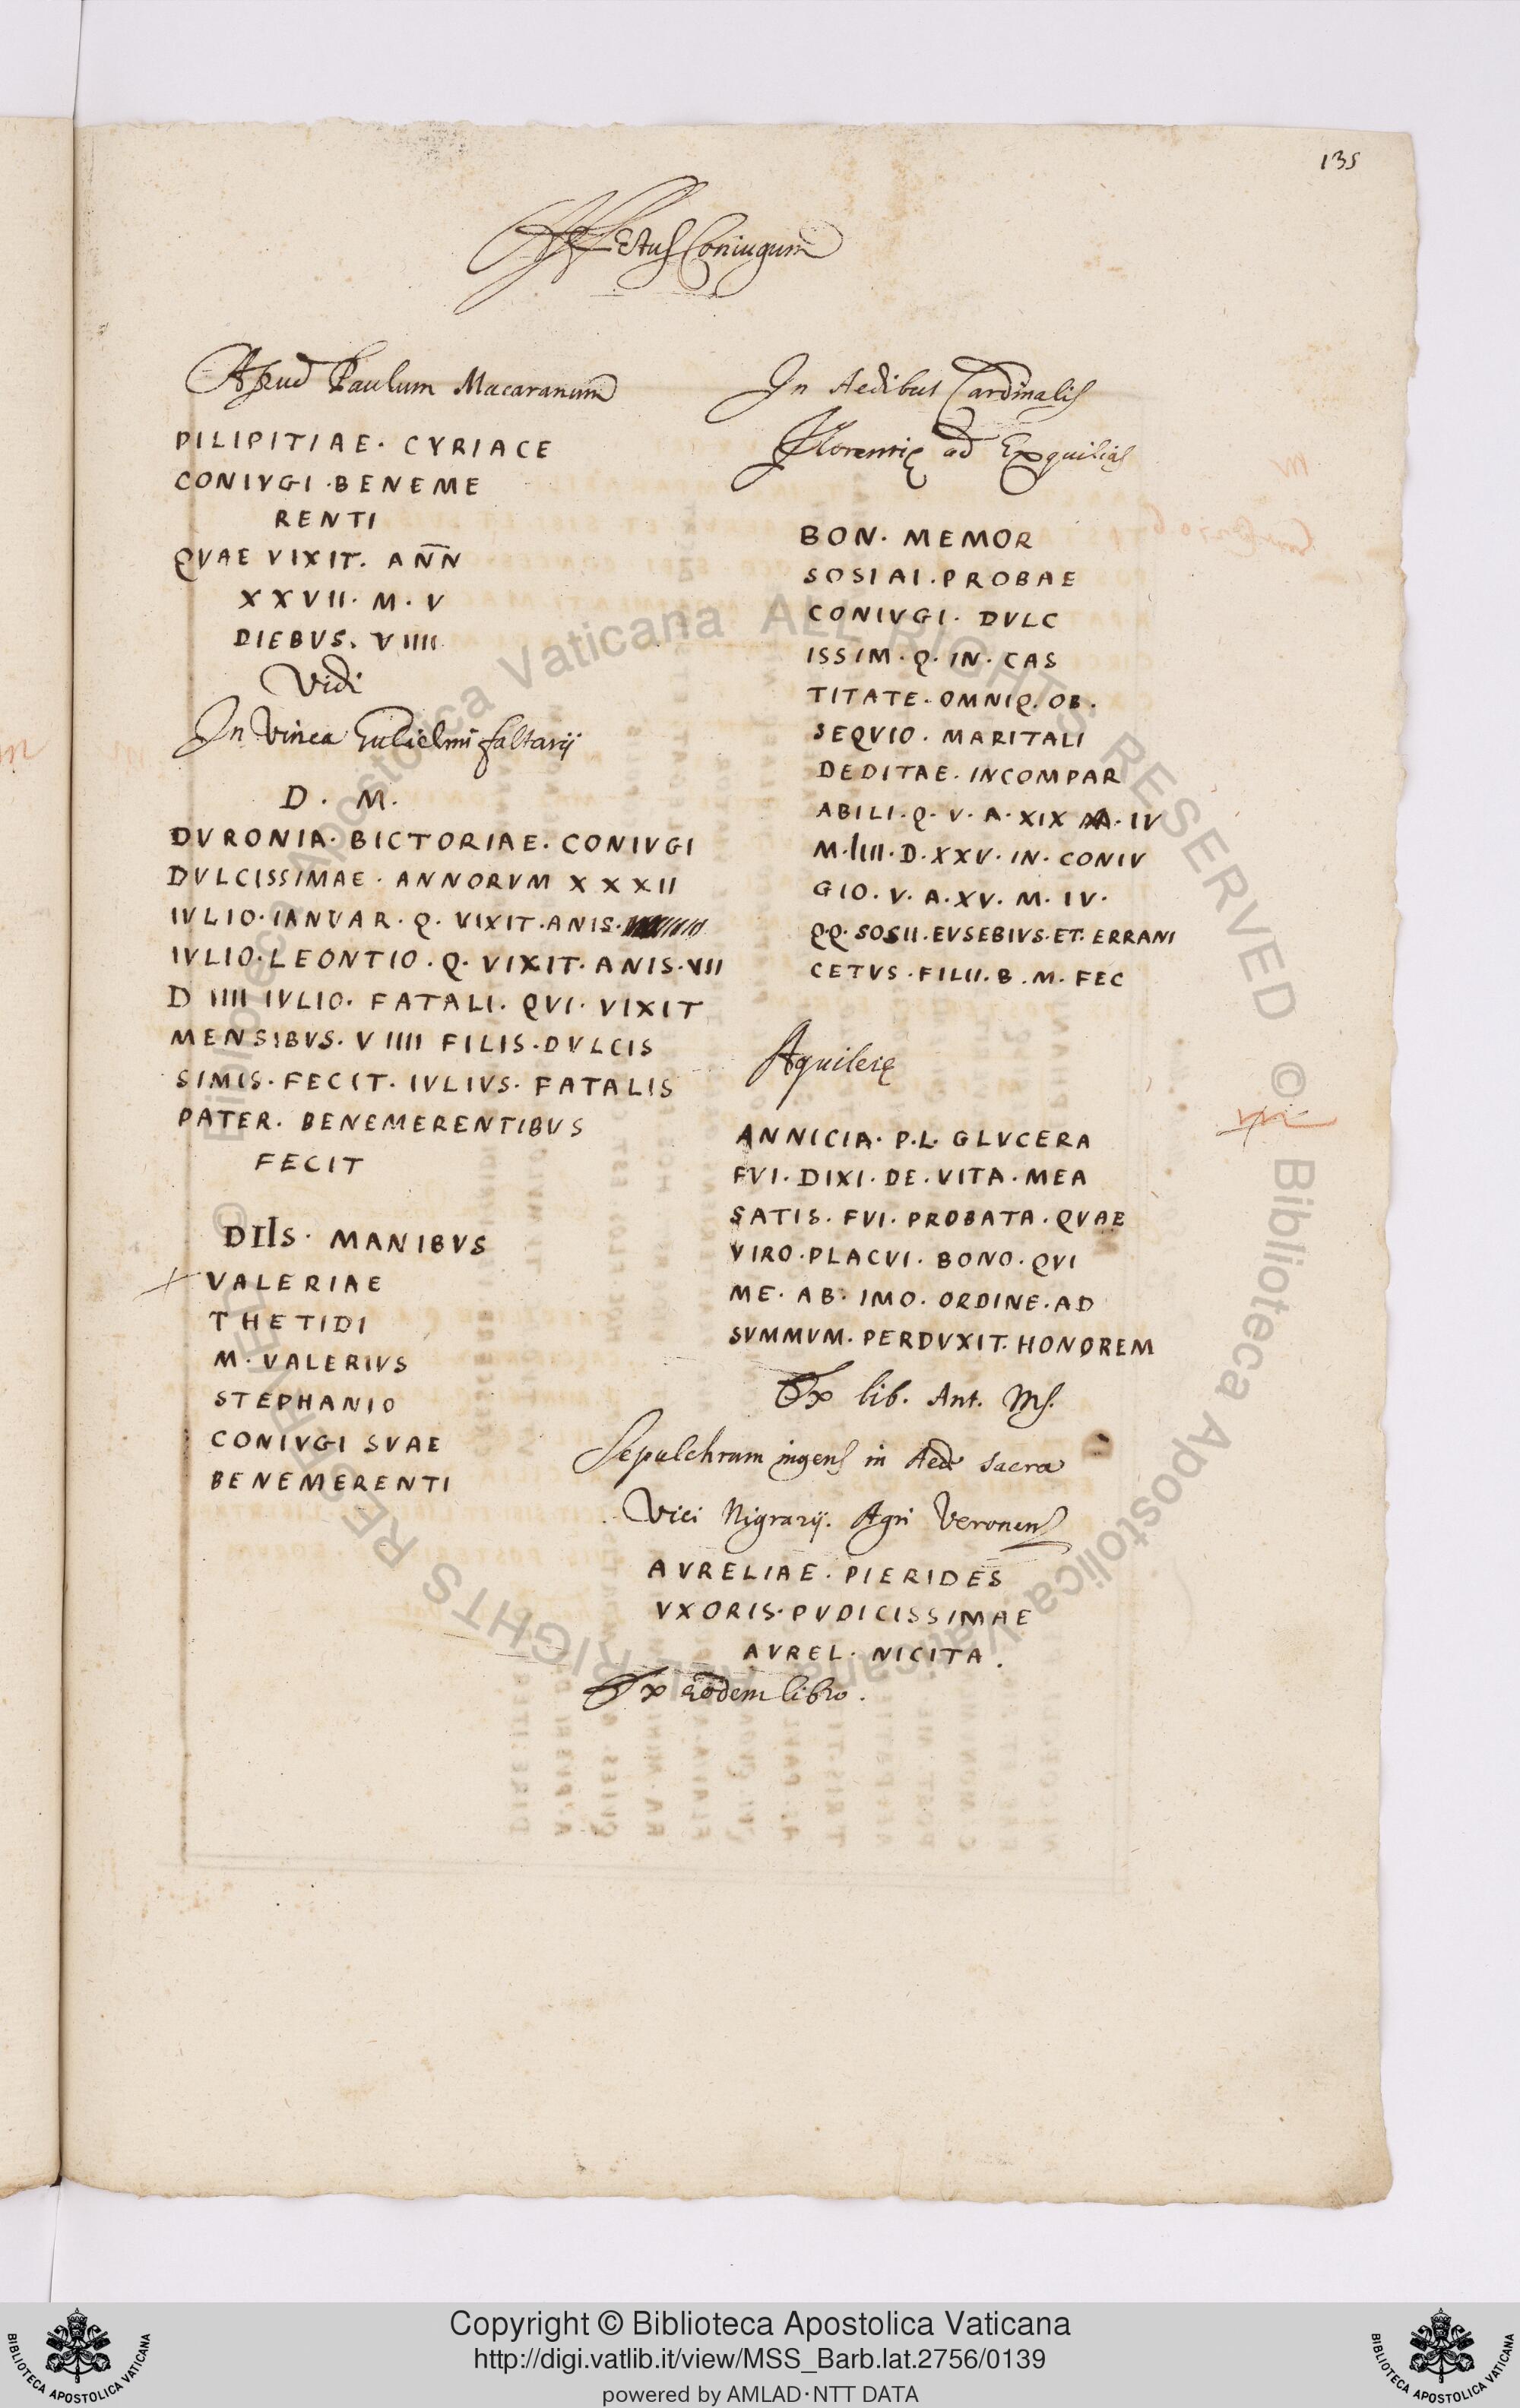 135
Affectus Coniugum
Apud Paulum Macaranum
PILIPITIAE. CYRIACE
CONIVGI. BENEME
RENTI
QVAE VIXIT. AN̄N
XXVII. M. V
DIEBVS. VIIII
Vidi
In Vinea Gulielmi saltarij
D. M.
DVRONIA. BICTORIAE. CONIVGI
DVLCISSIMAE. ANNORVM XXXII
IVLIO. IANVAR. Q. VIXIT. ANIS.
IVLIO. LEONTIO. Q. VIXIT. ANIS. VII
D IIII IVLIO. FATALI. QVI. VIXIT
MENSIBVS. VIIII FILIS. DVLCIS
SIMIS. FECIT. IVLIVS. FATALIS
PATER. BENEMERENTIBVS
FECIT
DIIS. MANIBVS
VALERIAE
THETIDI
M. VALERIVS
STEPHANIO
CONIVGI SVAE
BENEMERENTI
In Aedibus Cardinalis
Florentię ad Exquilias
BON. MEMOR
SOSIAI. PROBAE
CONIVGI. DVLC
ISSIM. Q. IN. CAS
TITATE. OMNIQ. OB.
SEQVIO. MARITALI
DEDITAE. INCOMPAR
ABILI. Q. V. A. XIX. IV
M. IIII. D. XXV. IN. CONIV
GIO. V. A. XV. M. IV.
QQ. SOSII. EVSEBIVS. ET. ERRANI
CETVS. FILII. B. M. FEC
Aquileię
ANNICIA. P. L. GLVCERA
FVI. DIXI. DE. VITA. MEA
SATIS. FVI. PROBATA. QVAE
VIRO. PLACVI. BONO. QVI
ME. AB. IMO. ORDINE. AD
SVMMVM. PERDVXIT. HONOREM
Ex lib. Ant. Ms.
Sepulchrum ingens in Aede sacra
Vici Nigrarij. Agri Veronens
AVRELIAE. PIERIDES
VXORIS. PVDICISSIMAE
AVREL. NICITA.
Ex eodem libro.
© Biblioteca Apostolica Vaticana ALL RIGHTS RESERVED © Biblioteca Apostolica Vaticana ALL RIGHTS RESERVED
Copyright © Biblioteca Apostolica Vaticana
http://digi.vatlib.it/view/MSS_Barb.lat.2756/0139
powered by AMLAD·NTT DATA
BIBLIOTECA APOSTOLICA VATICANA
BIBLIOTECA APOSTOLICA VATICANA